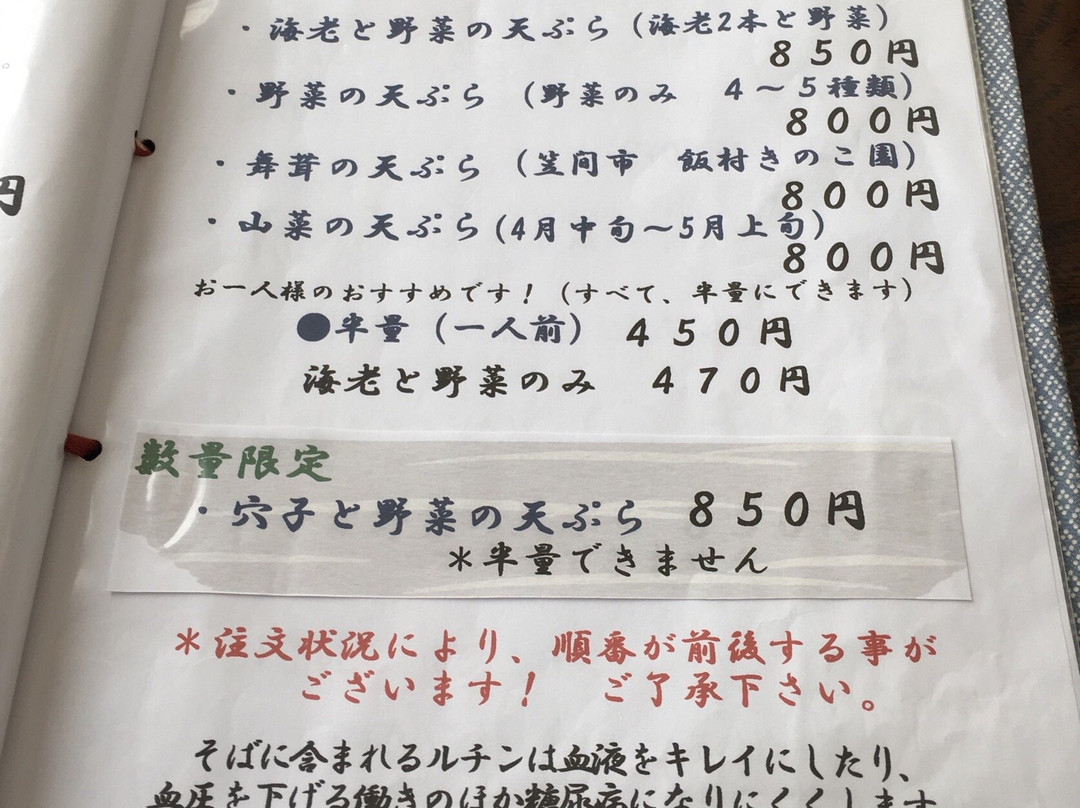 ・海老と野菜の天ぷら（海老2本と野菜）
８５０円
・野菜の天ぷら （野菜のみ ４～５種類）
８００円
・舞茸の天ぷら （笠間市 飯村きのこ園）
８００円
・山菜の天ぷら(4月中旬～5月上旬)
８００円
お一人様のおすすめです！（すべて、半量にできます）
●半量（一人前） ４５０円
海老と野菜のみ ４７０円
円
数量限定
・穴子と野菜の天ぷら ８５０円
＊半量できません
＊注文状況により、順番が前後する事が
ございます！ ご了承下さい。
そばに含まれるルチンは血液をキレイにしたり、
血圧を下げる働きのほか糖尿病になりにくくします